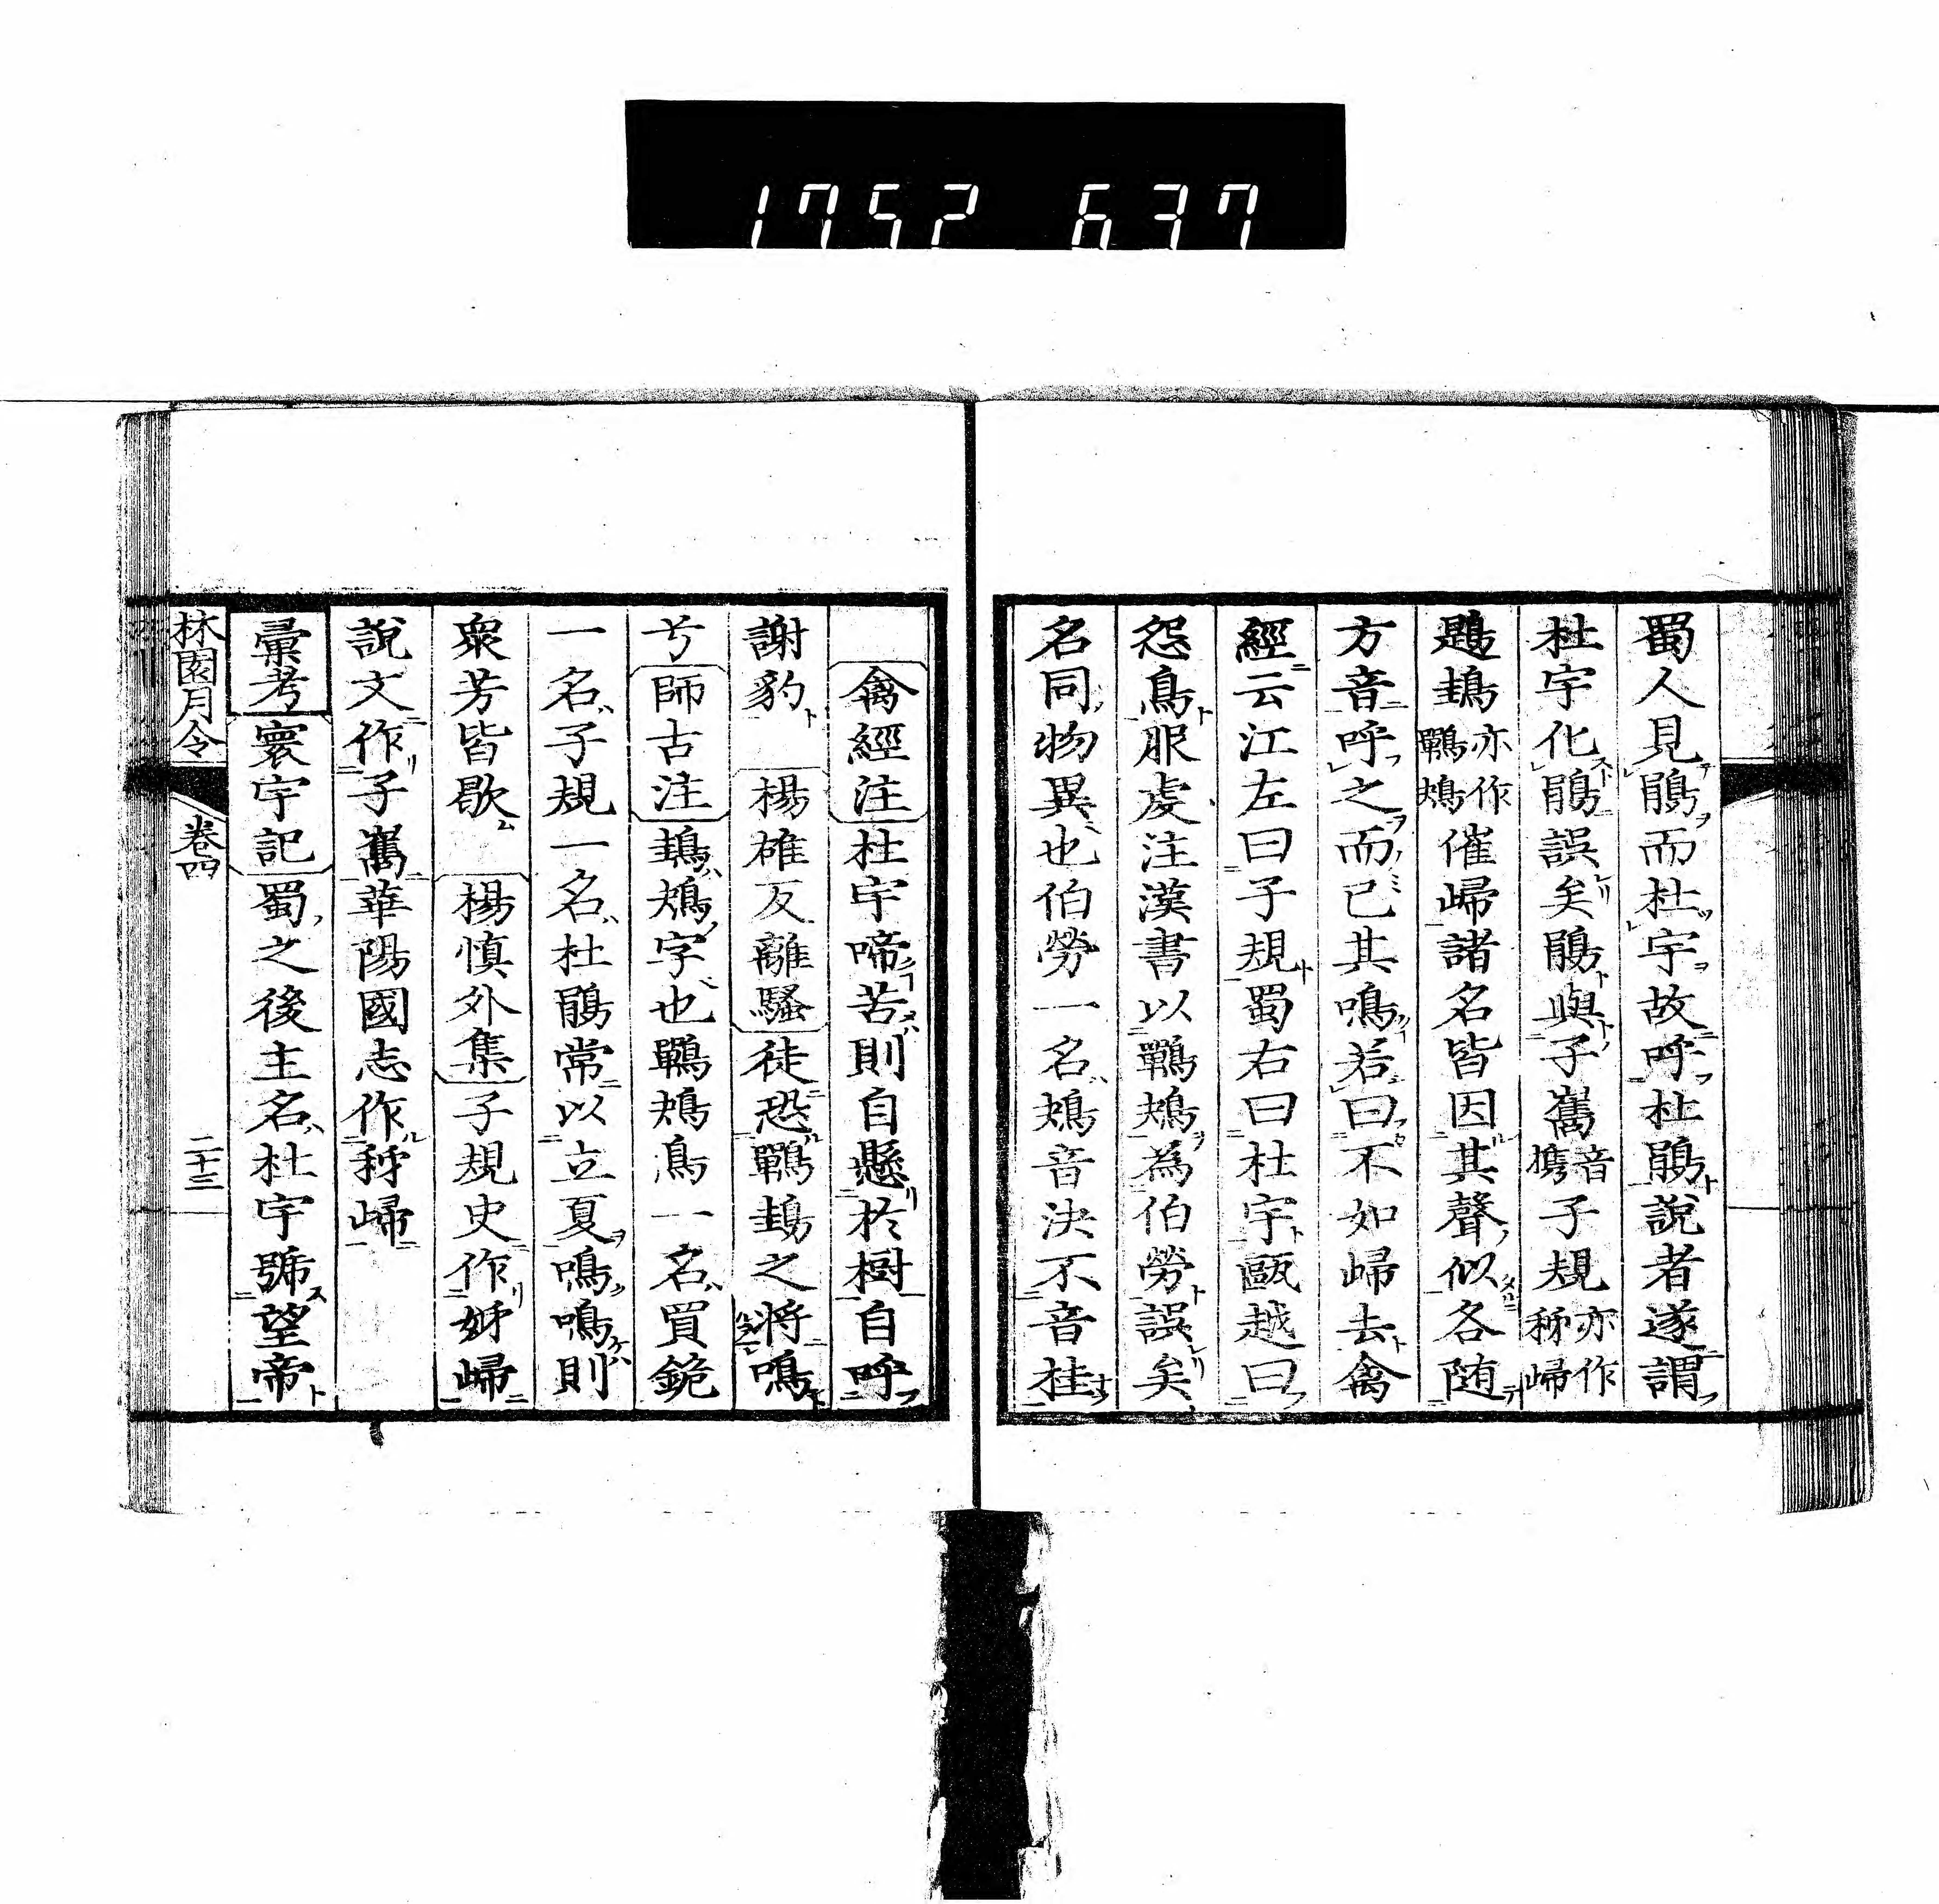 1752 637
蜀人見鵑而杜宇故呼杜鵑說者遂謂
杜宇化鵑誤矣鵑與子巂音㩗子規亦作秭歸
鶗鴂亦作鷤鴂催歸諸名皆因其聲似各随
方音呼之而已其鳴若曰不如歸去禽
經云江左曰子規蜀右曰杜宇甌越曰
怨鳥服虔注漢書以鷤鴂為伯勞誤矣
名同物異也伯勞一名鴂音決不音桂
禽經注杜宇啼苦則自懸於樹自呼
謝豹 楊雄反離騷徒恐鷤鴂之將鳴
兮師古注鴂鴂字也鷤鴂鳥一名買鵤
一名子規一名杜鵑常以立夏鳴鳴則
衆芳皆歇 楊慎外集子規史作姊歸
說文作子巂華陽國志作秭歸
彙考寰宇記蜀之後主名杜宇號望帝
林園月令 卷四 二十三